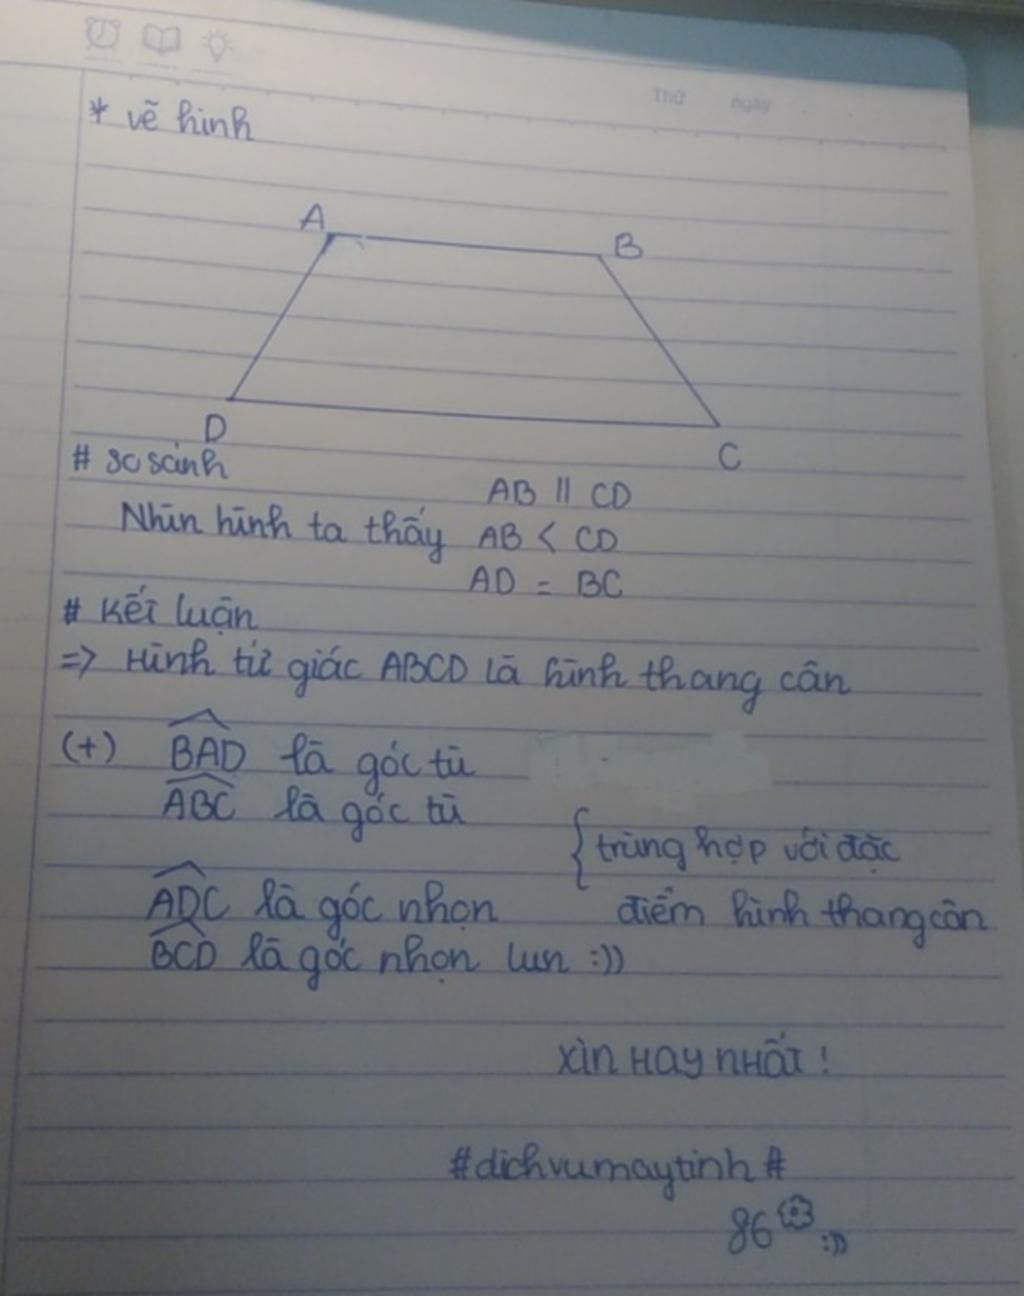 Thứ ngày
* vẽ hình
A
B
D
C
# so sánh
AB || CD
Nhìn hình ta thấy AB < CD
AD = BC
# Kết luận
=> Hình tứ giác ABCD là hình thang cân
(+) BAD là góc tù
ABC là góc tù
{ trùng hợp với đặc
ADC là góc nhọn điểm hình thang cân
BCD là góc nhọn lun :))
XìN HAY NHẤT !
#dichvumaytinh#
86 :))